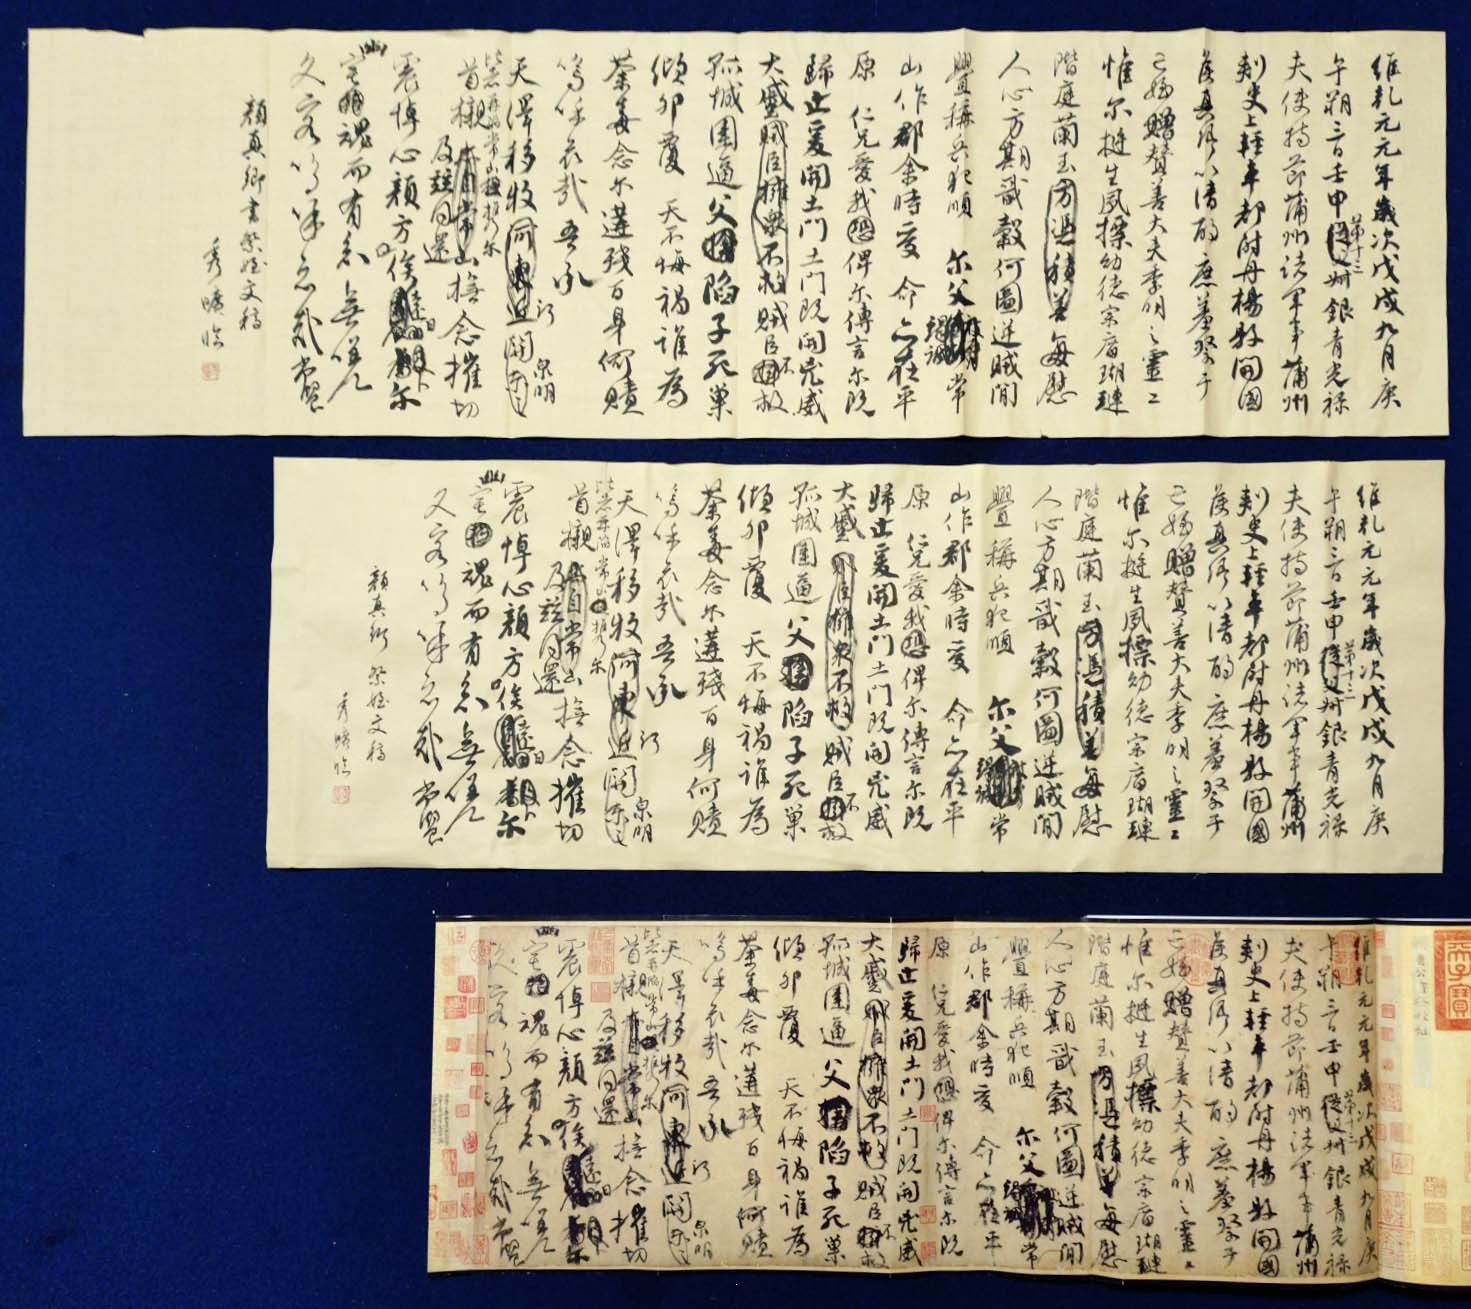 維乾元元年歲次戊戌九月庚
午朔三日壬申第十三從父叔銀青光祿
夫使持節蒲州諸軍事蒲州
刺史上輕車都尉丹楊縣開國
侯真卿以清酌庶羞祭于
亡姪贈贊善大夫季明之靈曰
惟爾挺生夙標幼德宗廟瑚璉
階庭蘭玉方憑積善每慰
人心方期戩穀何圖逆賊閒
釁稱兵犯順 爾父竭誠常
山作郡余時受 命亦在平
原 仁兄愛我恐俾爾傳言爾既
歸止爰開土門土門既開兇威
大蹙賊臣擁眾不救賊臣不救
孤城圍逼父陷子死巢
傾卵覆 天不悔禍誰為
荼毒念爾遘殘百身何贖
嗚呼哀哉吾承
天澤移牧河東近河關泉明
比者再陷常山攜爾
首櫬及茲同還撫念摧切
震悼心顏方俟遠日卜爾
幽宅魂而有知無嗟
久客嗚呼哀哉尚饗
顏真卿書祭姪文稿
秀曦臨
維乾元元年歲次戊戌九月庚
午朔三日壬申第十三從父叔銀青光祿
夫使持節蒲州諸軍事蒲州
刺史上輕車都尉丹楊縣開國
侯真卿以清酌庶羞祭于
亡姪贈贊善大夫季明之靈曰
惟爾挺生夙標幼德宗廟瑚璉
階庭蘭玉方憑積善每慰
人心方期戩穀何圖逆賊閒
釁稱兵犯順 爾父竭誠常
山作郡余時受 命亦在平
原 仁兄愛我恐俾爾傳言爾既
歸止爰開土門土門既開兇威
大蹙賊臣擁眾不救賊臣不救
孤城圍逼父陷子死巢
傾卵覆 天不悔禍誰為
荼毒念爾遘殘百身何贖
嗚呼哀哉吾承
天澤移牧河東近河關泉明
比者再陷常山攜爾
首櫬及茲同還撫念摧切
震悼心顏方俟遠日卜爾
幽宅魂而有知無嗟
久客嗚呼哀哉尚饗
顏真卿 祭姪文稿
秀曦臨
維乾元元年歲次戊戌九月庚
午朔三日壬申第十三從父叔銀青光祿
夫使持節蒲州諸軍事蒲州
刺史上輕車都尉丹楊縣開國
侯真卿以清酌庶羞祭于
亡姪贈贊善大夫季明之靈曰
惟爾挺生夙標幼德宗廟瑚璉
階庭蘭玉方憑積善每慰
人心方期戩穀何圖逆賊閒
釁稱兵犯順 爾父竭誠常
山作郡余時受 命亦在平
原 仁兄愛我恐俾爾傳言爾既
歸止爰開土門土門既開兇威
大蹙賊臣擁眾不救賊臣不救
孤城圍逼父陷子死巢
傾卵覆 天不悔禍誰為
荼毒念爾遘殘百身何贖
嗚呼哀哉吾承
天澤移牧河東近河關泉明
比者再陷常山攜爾
首櫬及茲同還撫念摧切
震悼心顏方俟遠日卜爾
幽宅魂而有知無嗟
久客嗚呼哀哉尚饗